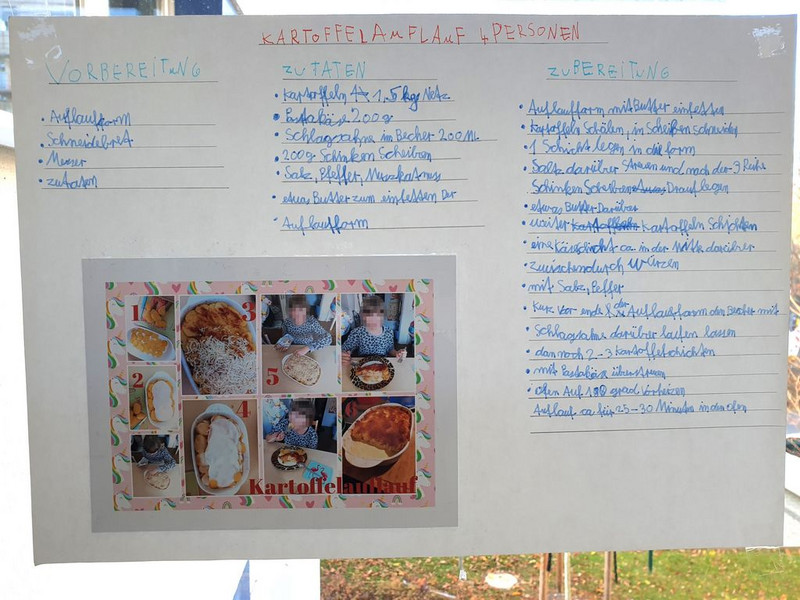 KARTOFFELAUFLAUF 4 PERSONEN
VORBEREITUNG
• Auflaufform
• Schneidebret
• Messer
• zutaten
ZUTATEN
• Kartoffeln 1,5 kg Netz
• Pastakäse 200g
• Schlagsahne im Becher 200 ML
• 200g Schinken Scheiben
• Salz, Pfeffer, Muszkatnuss
• etwas Butter zum einfetten Der
Auflaufform
ZUBEREITUNG
• Auflaufform mit Butter einfetten
• Kartoffeln Schälen, in Scheiben schneiden
• 1 Schicht legen in die form
• Salz darüber streuen und nach der 3 Reihe
Schinken Scheiben Drauf legen
• etwas Butter Darüber
• weiter Kartoffeln Schichten
• eine Käseschicht ca in der Mitte darüber
• zwischendurch Würzen
• mit Salz, Peffer
• Kurz vor ende der Auflaufform den Becher mit
• Schlagsahne darüber laufen lassen
• dan noch 2-3 Kartoffelschichten
• mit Pastakäse überstreuen
• ofen Auf 180 grad Vorheizen
Auflauf ca für 25-30 Minuten in den ofen
1
2
3
4
5
6
Kartoffelauflauf